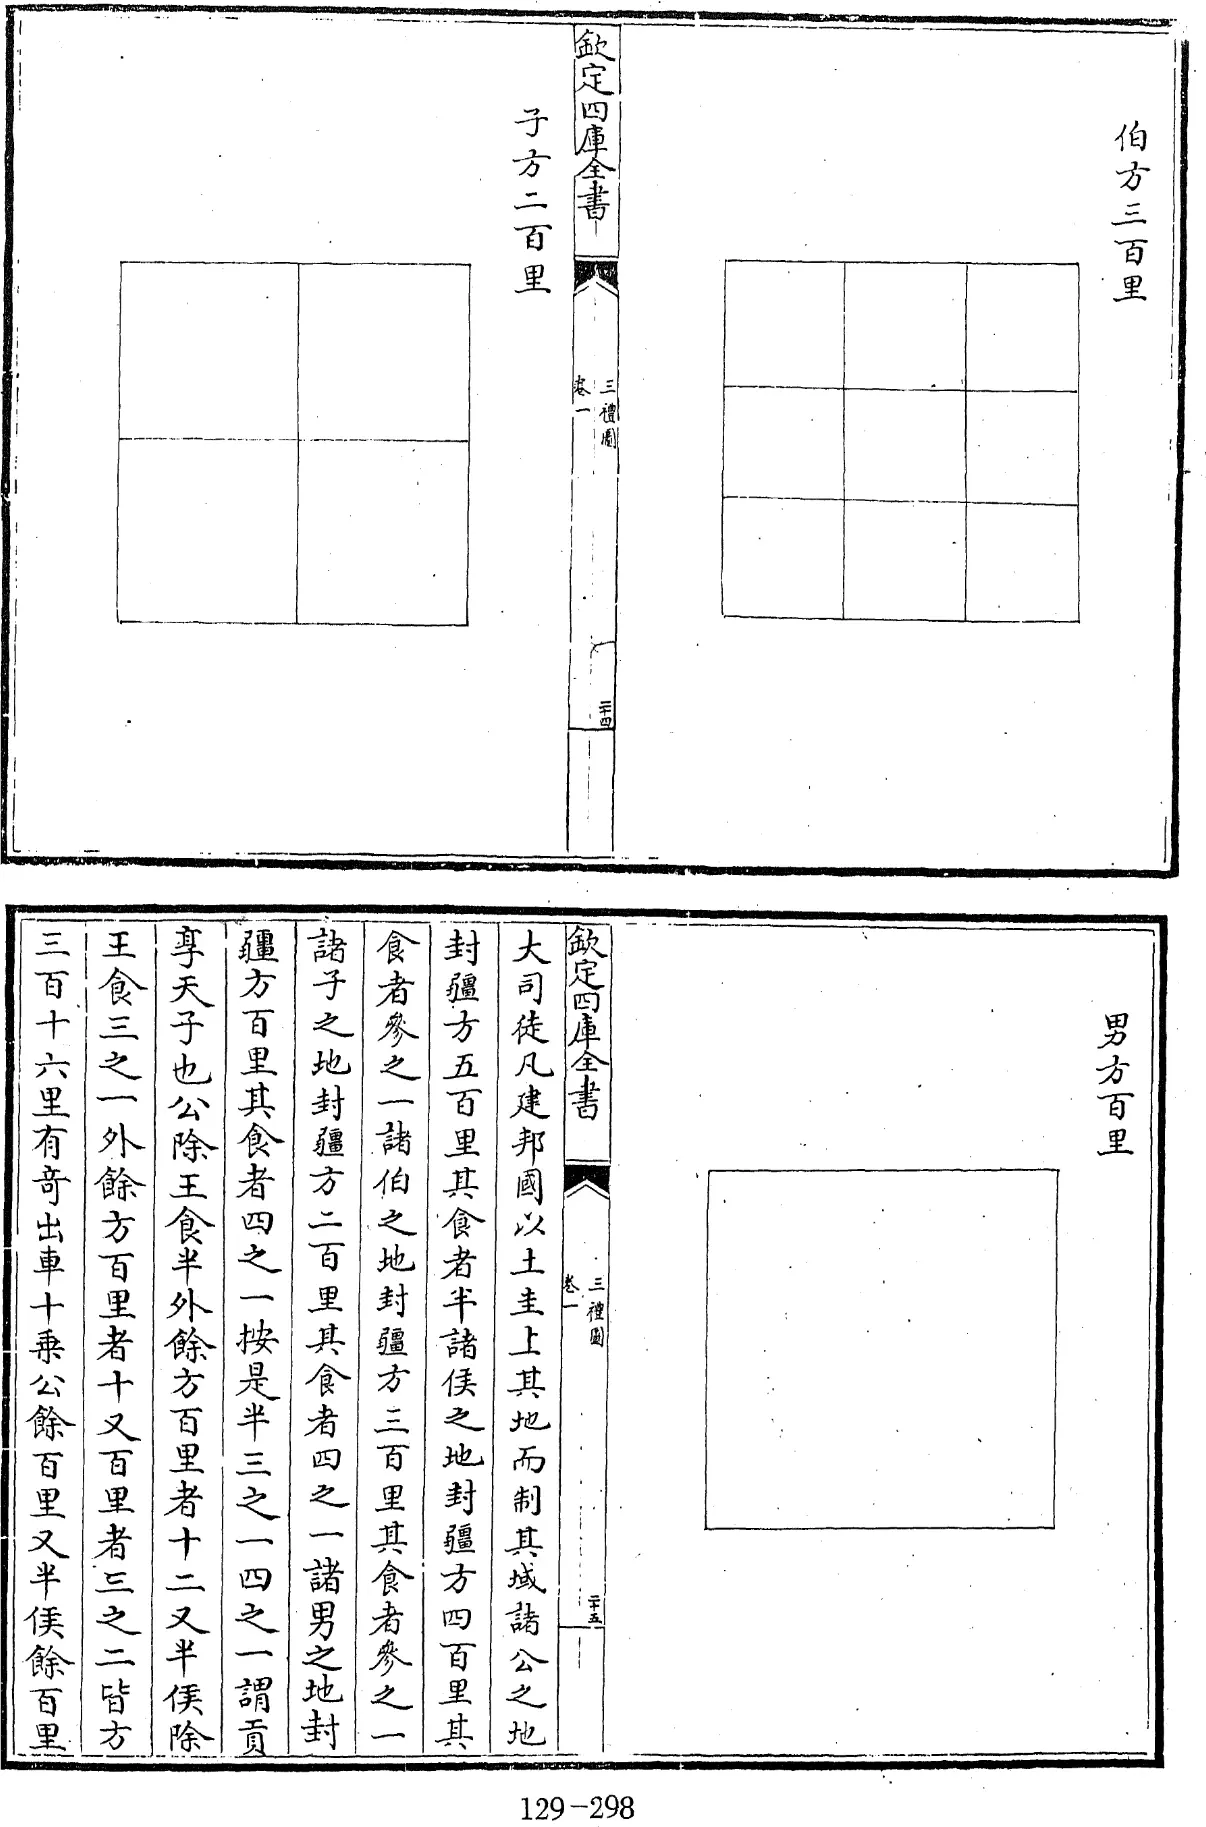 伯方三百里
欽定四庫全書
三禮圖
卷一
二十四
子方二百里
男方百里
欽定四庫全書
三禮圖
卷一
二十五
大司徒凡建邦國以土圭上其地而制其域諸公之地
封疆方五百里其食者半諸侯之地封疆方四百里其
食者參之一諸伯之地封疆方三百里其食者參之一
諸子之地封疆方二百里其食者四之一諸男之地封
疆方百里其食者四之一按是半三之一四之一謂貢
享天子也公除王食半外餘方百里者十二又半侯除
王食三之一外餘方百里者十又百里者三之二皆方
三百十六里有奇出車十乗公餘百里又半侯餘百里
129-298